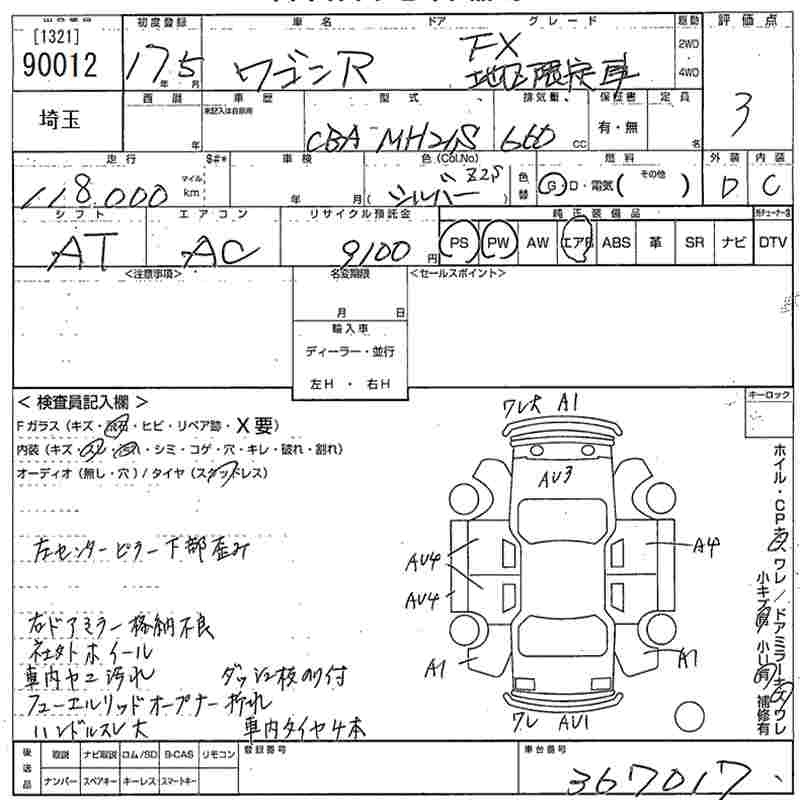 出品番号 初度登録 車名 ドア グレード 駆動 評価点
[1321]
90012 17 5 年 月 ワゴンR FX 地区限定車 2WD 4WD 3
埼玉 西暦 年 車歴 未記入は自家用 型式 CBA-MH21S 排気量 660 CC 保証書 有・無 定員 名
走行 $#* 車検 色(Col.No) 燃料 外装 内装
118.000 マイル km 年 月 ( シルバー Z2S ) 色替 G・D・電気( その他 ) D C
シフト エアコン リサイクル預託金 純正装備品
AT AC 9100 円 PS PW AW エアB ABS 革 SR ナビ DTV
<注意事項> 名変期限 <セールスポイント>
月 日
輸入車
ディーラー・並行
左H・右H
< 検査員記入欄 > キーロック
Fガラス(キズ・飛石・ヒビ・リペア跡・X要)
内装(キズ・スレ・汚れ・シミ・コゲ・穴・キレ・破れ・割れ)
オーディオ(無し・穴)/タイヤ(スタッドレス)
ワレ大 A1
AU3
左センターピラー下部歪み
AU4 A4
AU4
右ドアミラー格納不良
社外ホイール
車内ヤニ汚れ ダッシュ板のり付
フューエルリッドオープナー折れ
ハンドルスレ大 車内タイヤ4本
A1 A1
ワレ AU1
ホイル・CPキズ ワレ/ドアミラーキズ ワレ
小キズ有 小U有 補修有
後送品 取説 ナビ取説 ロム/SD B-CAS リモコン 登録番号 車台番号
ナンバー スペアキー キーレス スマートキー 367017